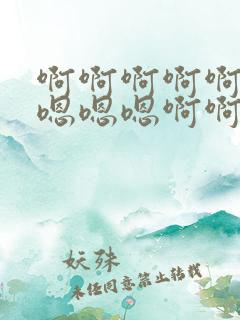 啊啊啊啊啊
嗯嗯嗯啊啊
妖殊
未经同意禁止转载